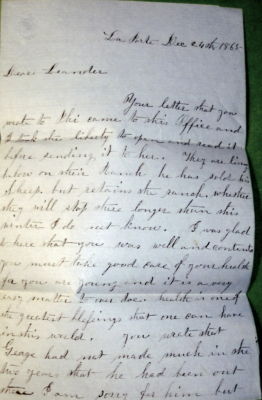 La Porte Dec 24th 1865
Dear Leander
Your letter that you
wrote to Phi came to this Office and
I took the liberty to open and read it
before sending it to her. They are living
below on their Ranch he has sold his
Sheep but retains the ranch, whether
they will stop there longer than this
winter I do not know. I was glad
to hear that you was well and contented
you must take good care of your health
for you are young and it is a very
easy matter to health is one of
the greatest blessings that one can have
in this world. You wrote that
George had not made much in the
two years that he had been out
there I am sorry for him but